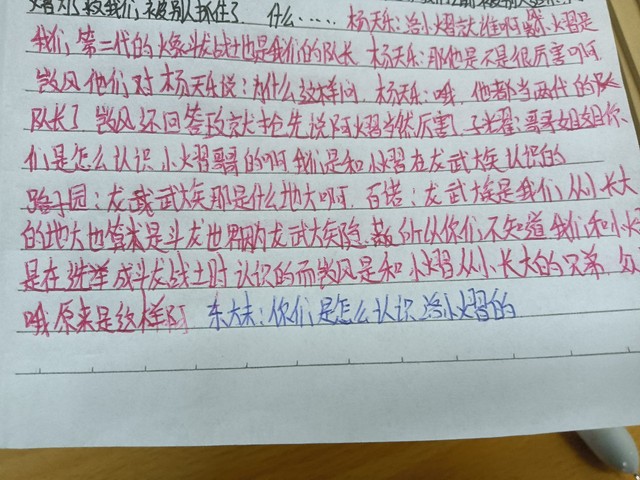 熠为了救我们被别人抓住了. 什么……杨天乐:洛小熠就谁啊 洛小熠是
我们第二代的火斗龙战士也是我们的队长 杨天乐:那他是不是很厉害啊
微风他们对杨天乐说:为什么这样问 杨天乐:哦,他都当两代的队
队长了 微风还回答 就抢先说阿熠当然厉害了 子耀:哥哥姐姐你
们是怎么认识小熠哥哥的啊 我们是和小熠在龙武大族认识的
园:龙武大族那是什么地大啊. 百诺:龙武大族是我们从小长大
的地大也算来是斗龙世界内龙武大族隐 所以你们不知道我们和小
是在选举成斗龙战士时认识的而微风是和小熠从小长大的兄弟
哦原来是这样阿 东大夫:你们是怎么认识洛小熠的